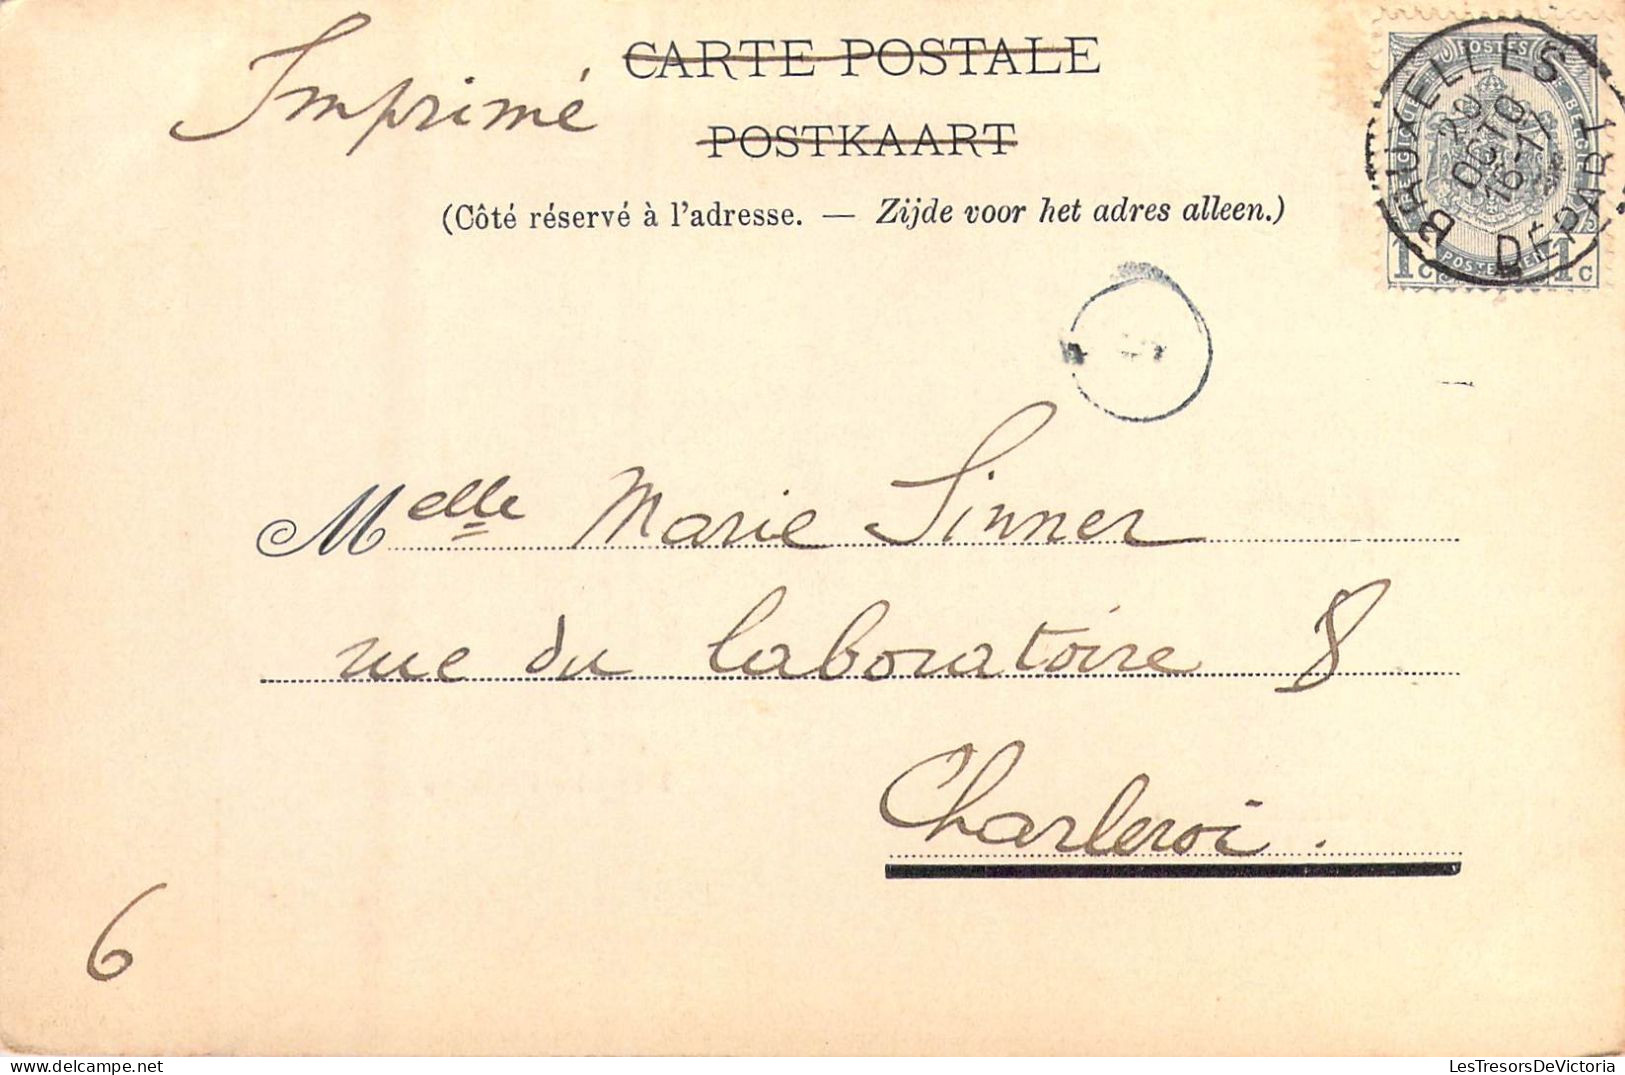 CARTE POSTALE
Imprimé
POSTKAART
(Côté réservé à l'adresse. — Zijde voor het adres alleen.)
POSTES
BELGIQUE
BELGIË
1 C
1 C
BRUXELLES
20
OCT
16-17
DÉPART
Melle Marie Sinner
rue du laboratoire 8
Charleroi.
6
LesTresorsDeVictoria